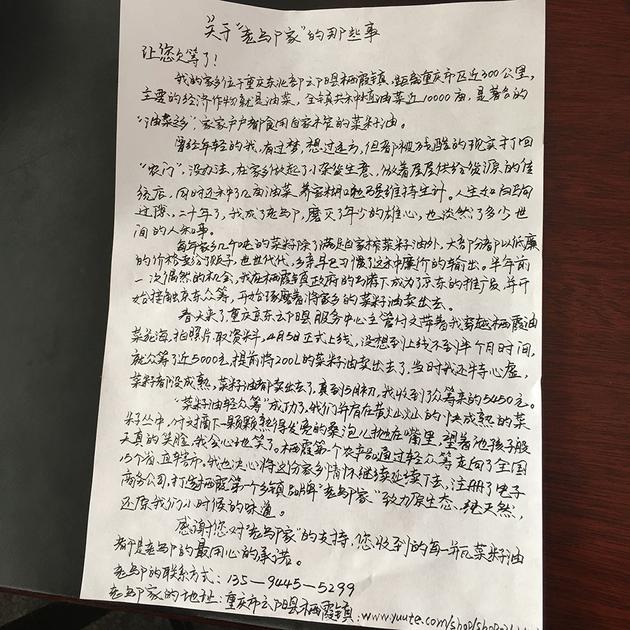 关于"老马家"的那些事
让您久等了！
我的家乡位于重庆东北部云阳县栖霞镇，距离重庆市区近300公里，
主要的经济作物就是油菜，全镇共种植油菜近10000亩，是著名的
"油菜乡"，家家户户都食用自家木榨的菜籽油。
曾经年轻的我，有过梦，想过远方，但都被残酷的现实打回
"农门"，没办法，在家乡做起了小杂货生意，做着层层供给货源的传
统店，同时还种了几亩油菜，养家糊口勉强维持生计。人生如白驹
过隙，二十年了，我成了老马，磨灭了年少的雄心，也淡然了多少世
间的人和事。
每年家乡几千吨的菜籽除了满足自家榨菜籽油外，大部分都以低廉
的价格卖给了贩子，世世代代，乡亲早已习惯了这种廉价的输出。半年前
一次偶然的机会，我在栖霞镇政府的支持下成为了京东的推广员，并开
始接触京东众筹，开始琢磨着将家乡的菜籽油卖出去。
春天来了，重庆京东云阳县服务中心主管付文萍带着我穿越栖霞油
菜花海，拍照片，取资料，4月5日正式上线，没想到上线不到半个月时间，
就众筹了近5000元，提前将200L的菜籽油卖出去了，当时我还特心虚，
菜籽都没成熟，菜籽油都卖出去了，直到5月初，我收到了众筹来的5450元。
"菜籽油轻众筹"成功了，我们并肩在黄灿灿的快成熟的菜
籽丛中，付文摘下一颗颗熟得发亮的桑泡儿抛在嘴里，望着他孩子般
天真的笑脸，我会心地笑了。栖霞第一个农产品通过轻众筹走向了全国
15个省、直辖市。我也决心将这份家乡情怀继续延续下去，注册了电子
商务公司，打造栖霞第一个乡镇品牌"老马家"致力原生态、纯天然，
还原我们小时候的味道。
感谢您对"老马家"的支持，您收到的每一瓶菜籽油
都是老马的最用心的承诺。
老马的联系方式：135-9445-5299
老马家的地址：重庆市云阳县栖霞镇：www.yuute.com/shop/shop